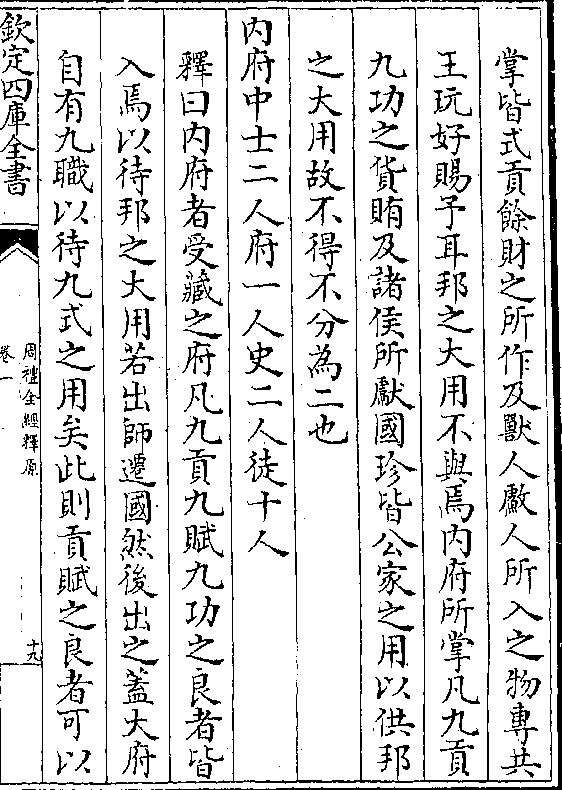 掌皆式貢餘財之所作及獸人㱃人所入之物專共
王玩好賜予耳邦之大用不與焉内府所掌凡九貢
九功之貨賄及諸侯所獻國珍皆公家之用以供邦
之大用故不得不分為二也
内府中士二人府一人史二人徒十人
釋曰内府者受藏之府凡九貢九賦九功之良者皆
入焉以待邦之大用若出師遷國然後出之蓋大府
自有九職以待九式之用矣此則貢賦之良者可以
欽定四庫全書
周禮全經釋原
卷一
十九